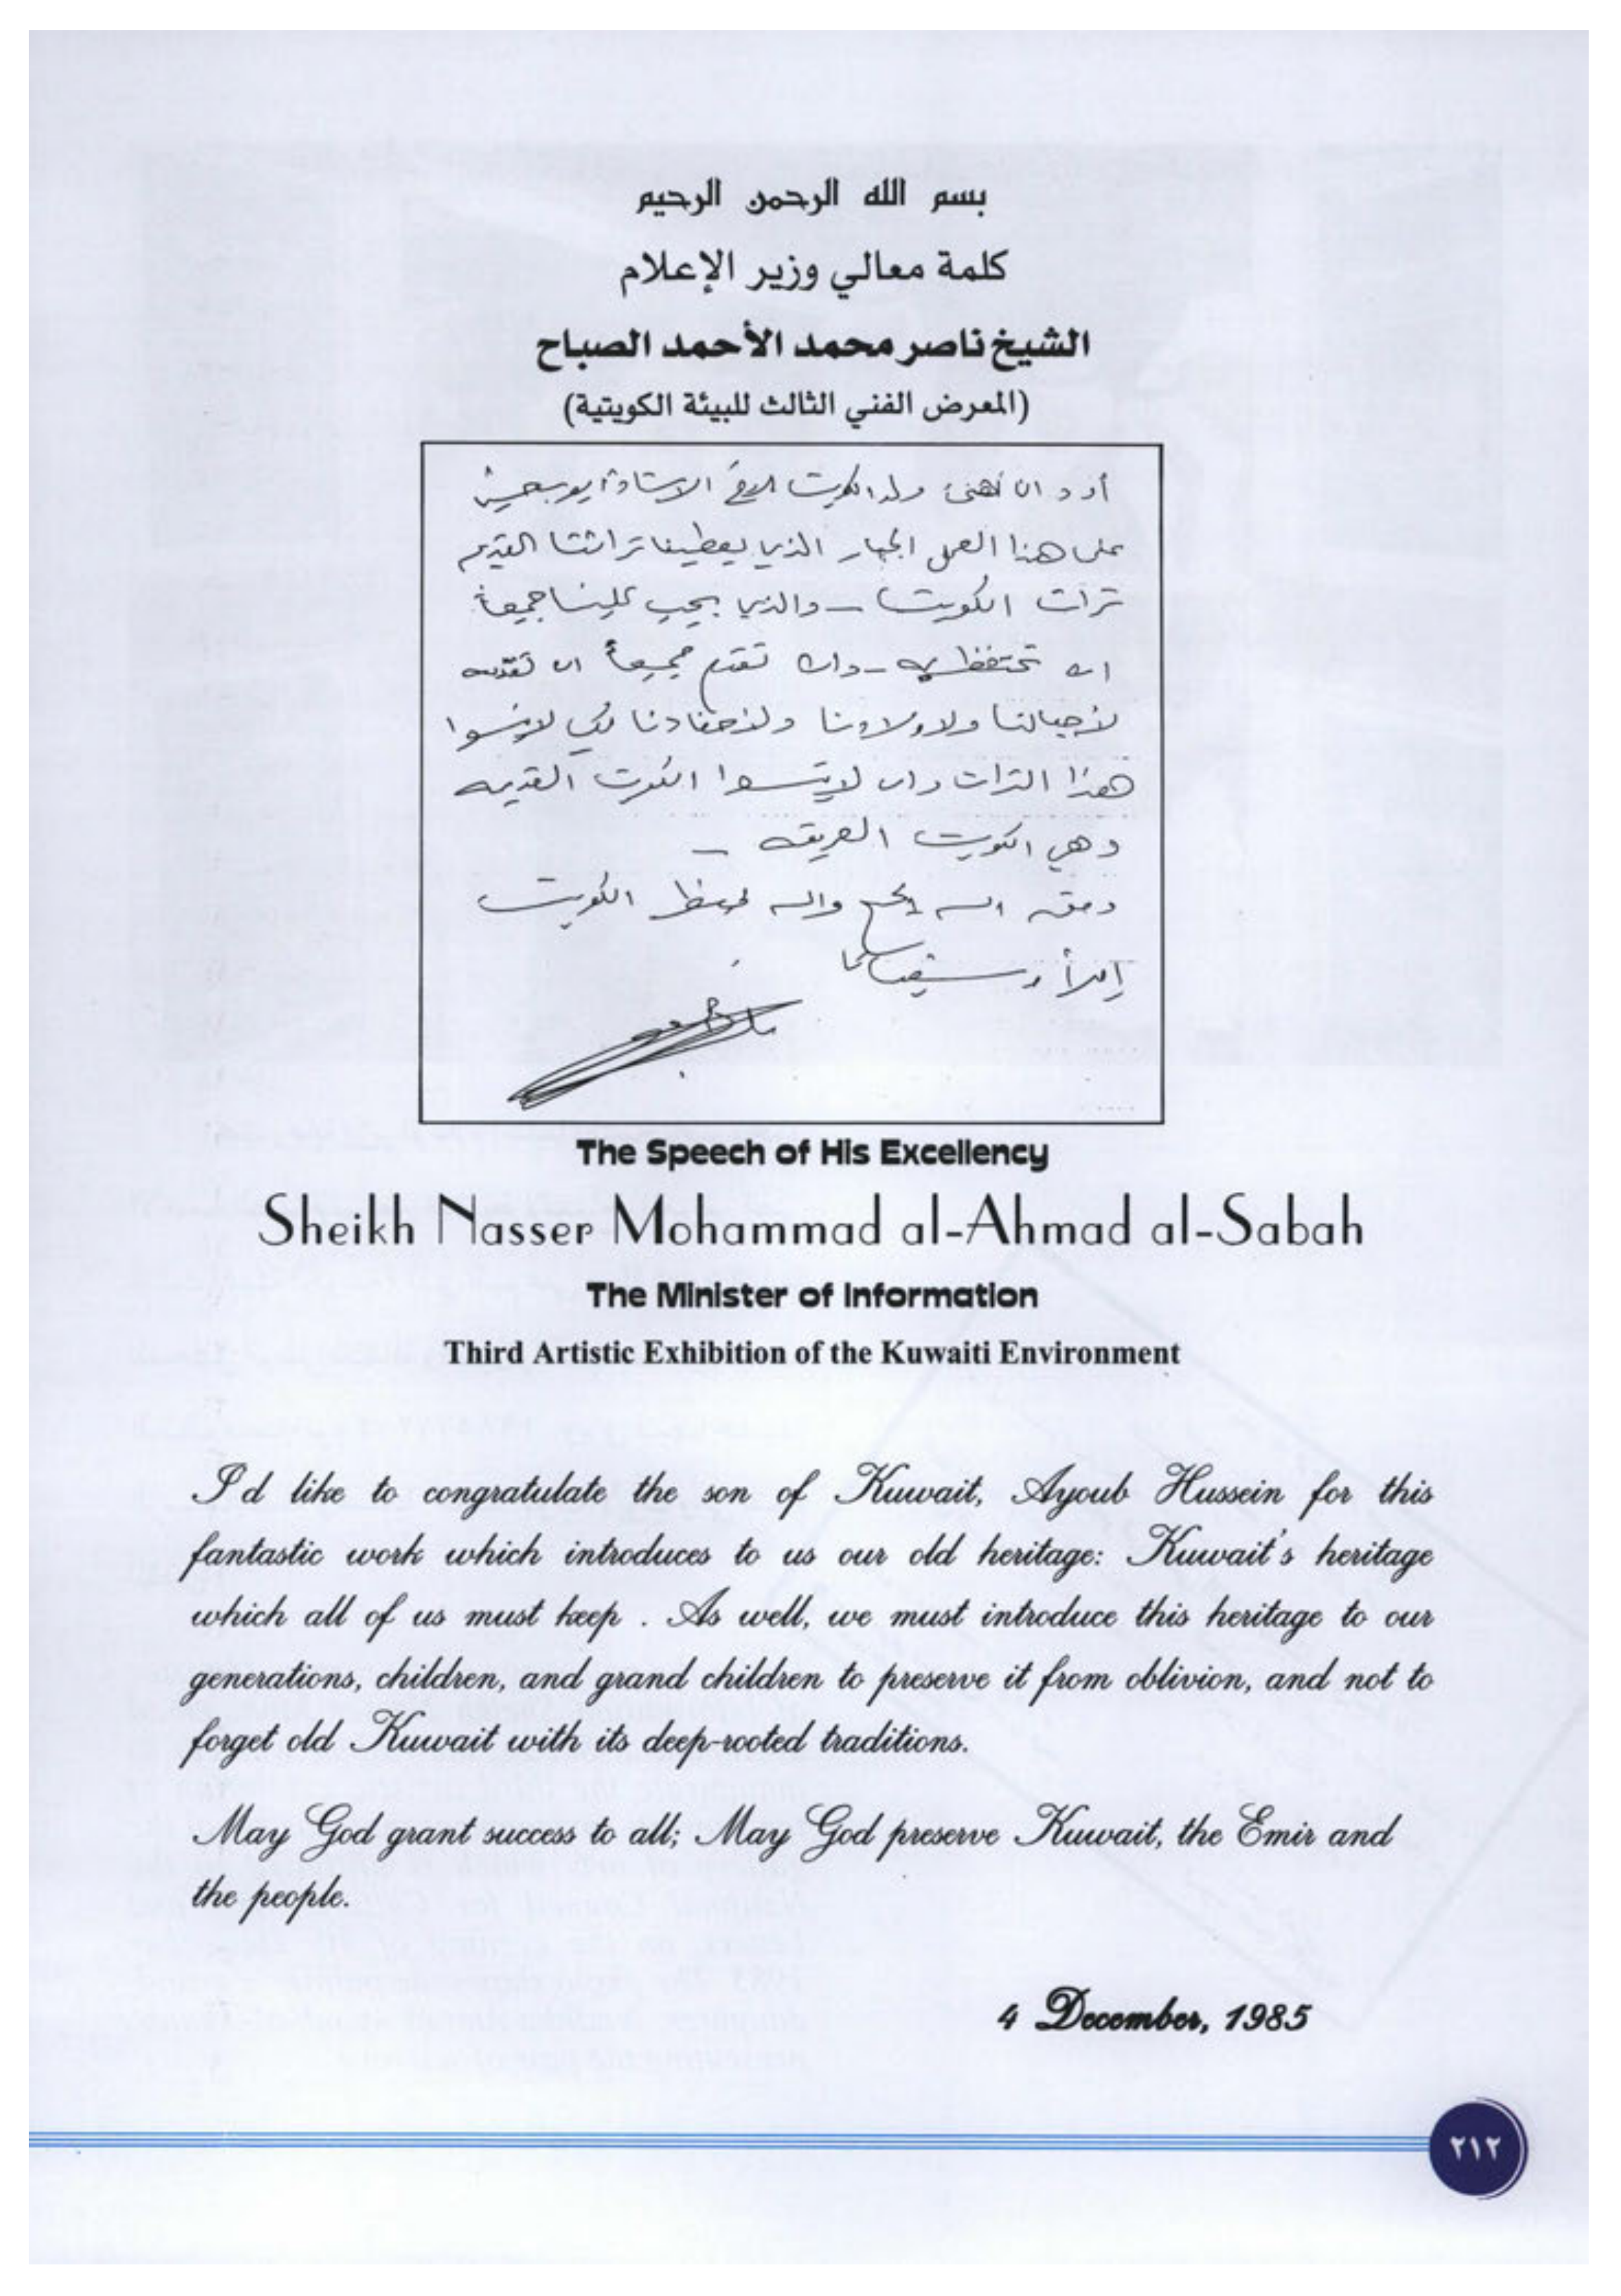 بسم الله الرحمن الرحيم
كلمة معالي وزير الإعلام
الشيخ ناصر محمد الأحمد الصباح
(المعرض الفني الثالث للبيئة الكويتية)
أود ان أهنئ ولد الكويت الاخ الاستاذ أيوب حسين
على هذا العمل الجبار الذي يعطينا تراثنا القديم
تراث الكويت - والذي يجب علينا جميعاً
ان نحتفظ به - وان نقدم جميعاً ان نقدمه
لأجيالنا ولاولادنا ولأحفادنا لكي لا ينسوا
هذا التراث وان لا ينسوا الكويت القديمه
وهي الكويت العريقه -
وفق الله الجميع والله يحفظ الكويت
The Speech of His Excellency
Sheikh Nasser Mohammad al-Ahmad al-Sabah
The Minister of Information
Third Artistic Exhibition of the Kuwaiti Environment
I'd like to congratulate the son of Kuwait, Ayoub Hussein for this
fantastic work which introduces to us our old heritage: Kuwait's heritage
which all of us must keep . As well, we must introduce this heritage to our
generations, children, and grand children to preserve it from oblivion, and not to
forget old Kuwait with its deep-rooted traditions.
May God grant success to all; May God preserve Kuwait, the Emir and
the people.
4 December, 1985
٢١٢